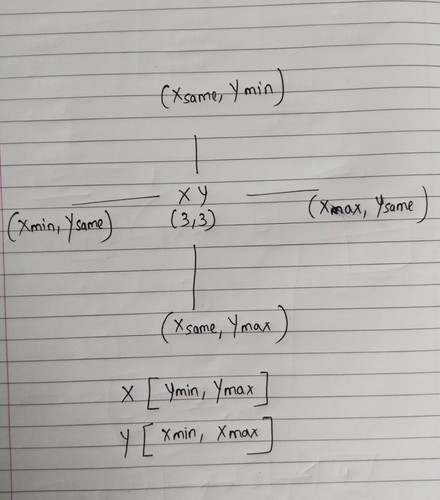 (Xsame, Ymin)
X Y
(Xmin, Ysame) (3,3) (Xmax, Ysame)
(Xsame, Ymax)
X [Ymin, Ymax]
Y [Xmin, Xmax]